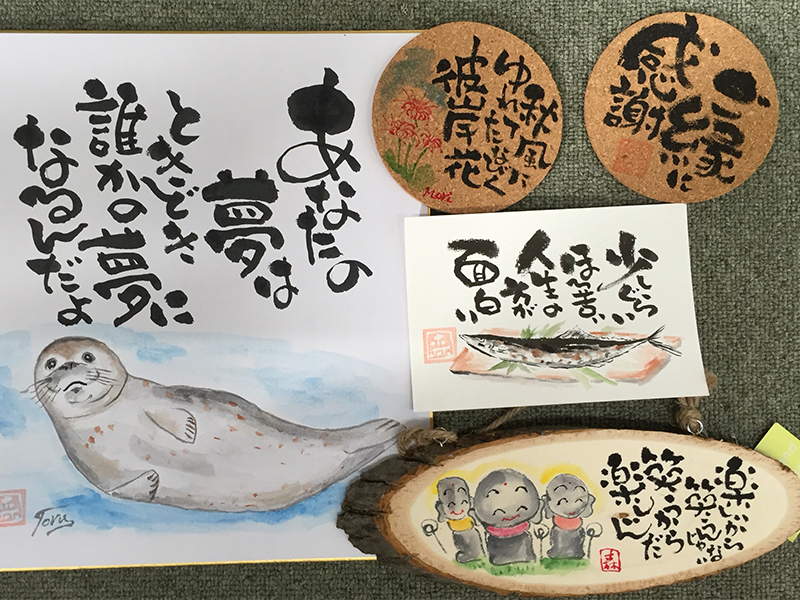 あなたの
夢は
ときどき
誰かの夢に
なるんだよ
Toru
秋風に
ゆれて
彼岸花
Mori
ご縁に
感謝
少しぐらい
ほろ苦い
人生の
方が
面白い
森
楽しいから
笑うんじゃない
笑うから
楽しいんだ
森